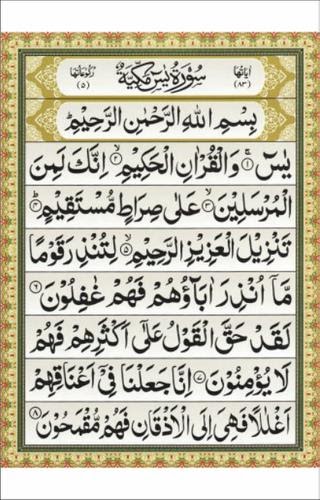 اٰيَاتُهَا سُوْرَةُ يٰسٓ مَكِّيَّةٌ رُكُوْعَاتُهَا
(۸۳) (۵)
بِسْمِ اللهِ الرَّحْمٰنِ الرَّحِيْمِ
يٰسٓ ۱ وَالْقُرْاٰنِ الْحَكِيْمِ ۲ اِنَّكَ لَمِنَ
الْمُرْسَلِيْنَ ۳ عَلٰى صِرَاطٍ مُّسْتَقِيْمٍ ۴
تَنْزِيْلَ الْعَزِيْزِ الرَّحِيْمِ ۵ لِتُنْذِرَ قَوْمًا
مَّآ اُنْذِرَ اٰبَآؤُهُمْ فَهُمْ غٰفِلُوْنَ ۶
لَقَدْ حَقَّ الْقَوْلُ عَلٰٓى اَكْثَرِهِمْ فَهُمْ
لَا يُؤْمِنُوْنَ ۷ اِنَّا جَعَلْنَا فِيْٓ اَعْنَاقِهِمْ
اَغْلٰلًا فَهِىَ اِلَى الْاَذْقَانِ فَهُمْ مُّقْمَحُوْنَ ۸